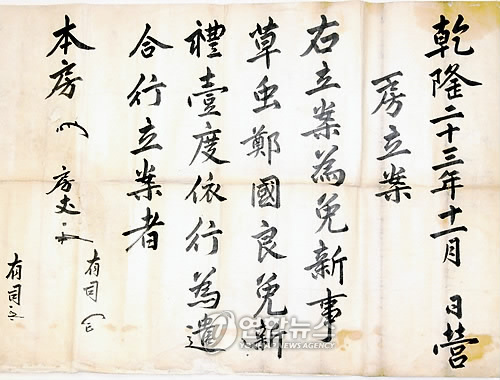 乾隆二十三年十一月 日營
房立案
右立案為免新事
草虫鄭國良免新
禮壹度依行為遣
合行立案者
本房
房丈
有司
有司
연합뉴스
YONHAP NEWS AGENCY